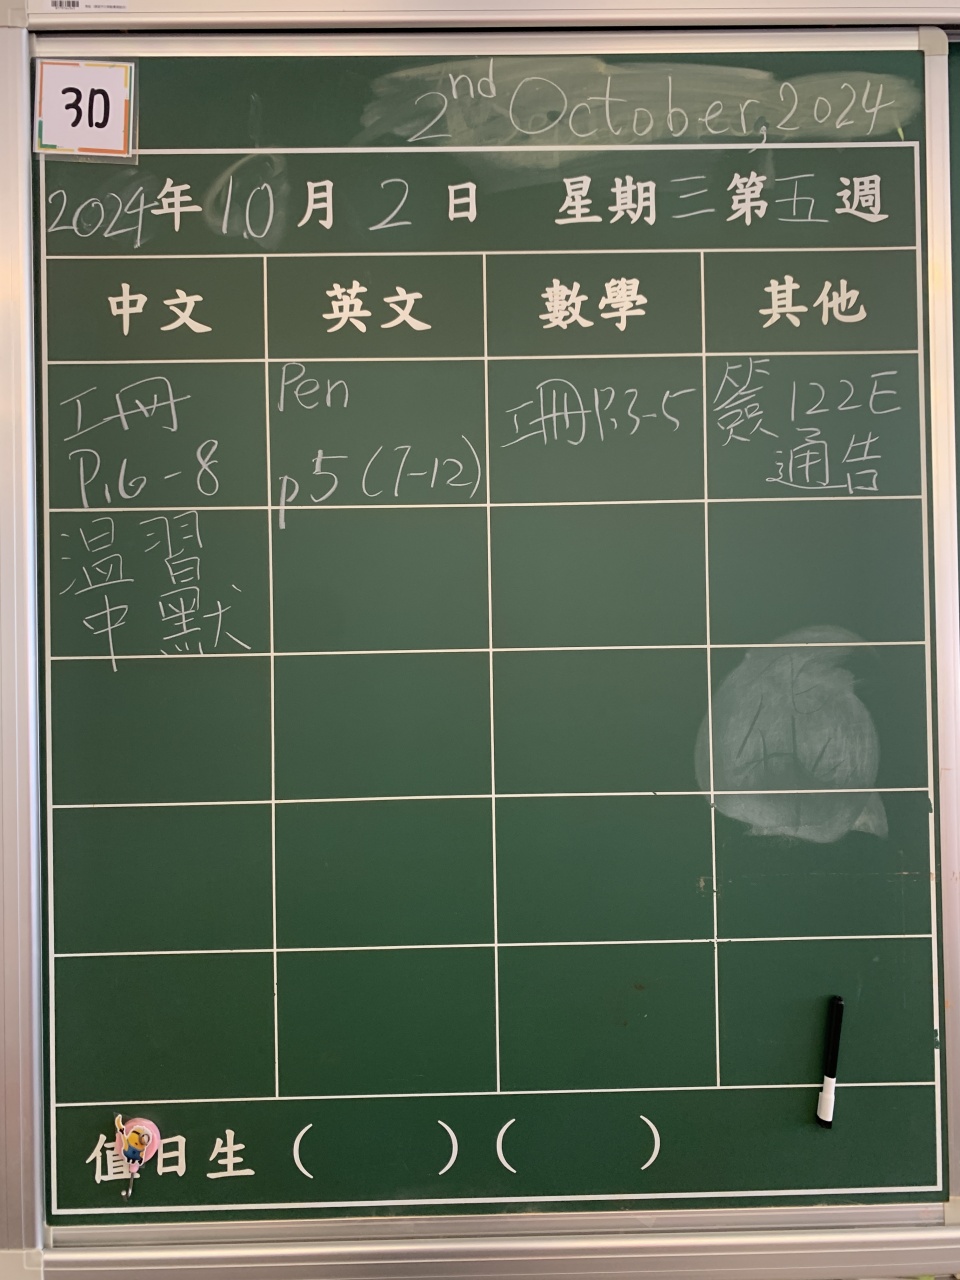 3D
2nd October, 2024
2024年10月2日 星期三第五週
中文 英文 數學 其他
工冊
P.6-8
Pen
p5 (7-12)
工冊P.3-5
簽122E
通告
溫習
中默
值日生 ( ) ( )